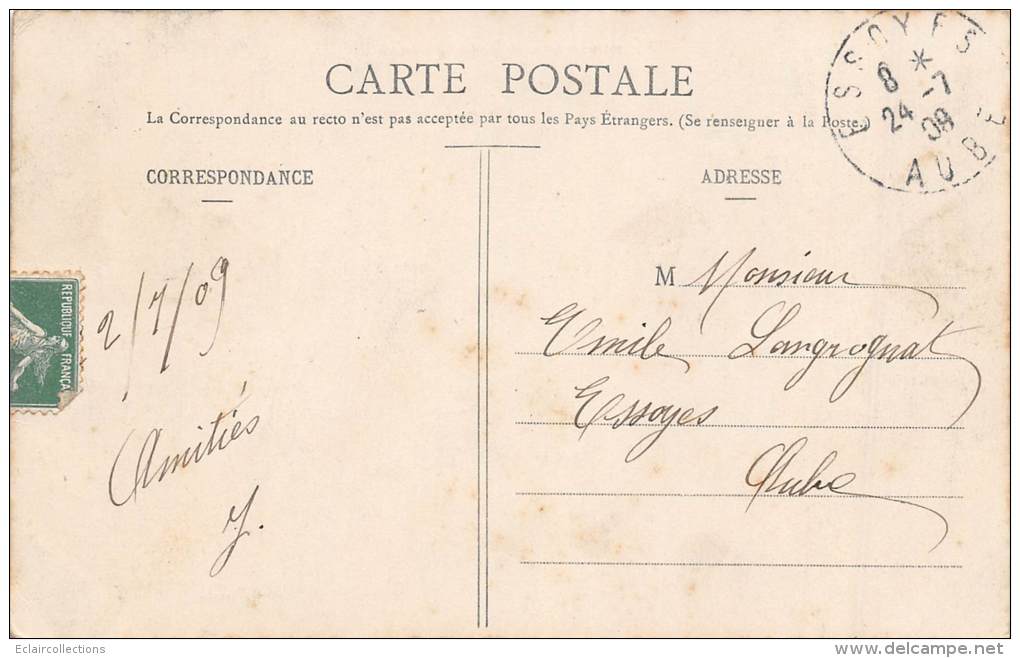 CARTE POSTALE
La Correspondance au recto n'est pas acceptée par tous les Pays Étrangers. (Se renseigner à la Poste.)
ESSOYES
8 *
24 -7
09
AUBE
CORRESPONDANCE
ADRESSE
REPUBLIQUE FRANÇA
2/7/09
Amitiés
J.
M Monsieur
Emile Langrognat
Essoyes
Aube
Eclaircollections
www.delcampe.net